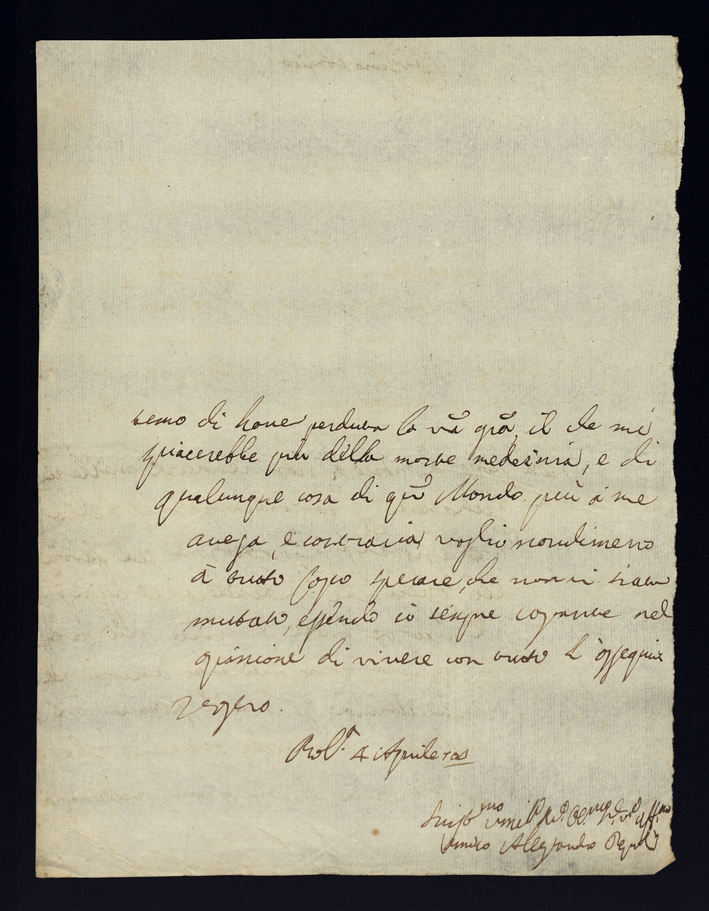 temo di haver perduta la vr̃a gr̃a, il che mi
spiacerebbe più della morte medesima, e di
qualunque cosa di qsto Mondo più à me
avega, e contraria voglio nondimeno
à tutto sperare, che non vi siate
mutato, essendo io sempre costante nel
di vivere con tutto l'ossequio
Bol.a 4 Aprile
Alessandro Pepoli